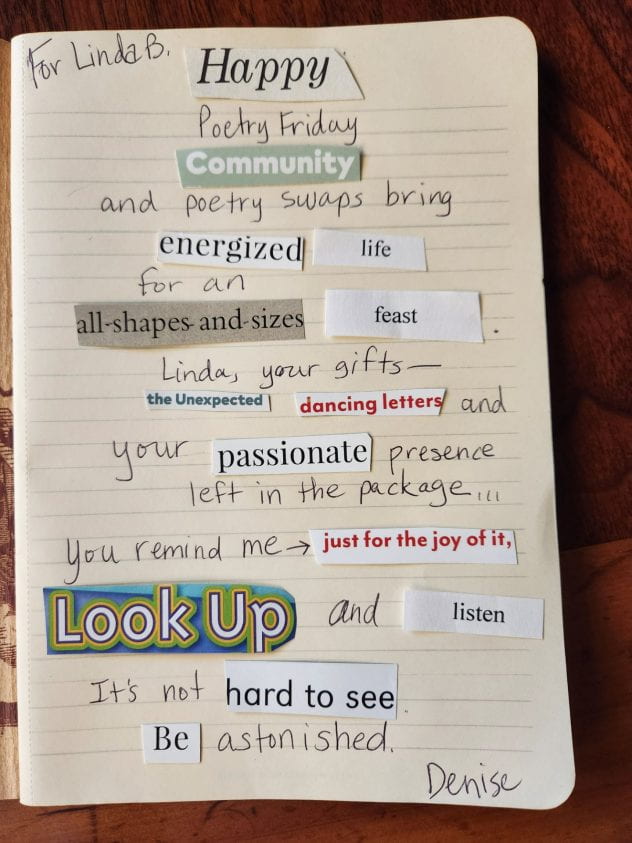 For Linda B.
Happy
Poetry Friday
Community
and poetry swaps bring
energized life
for an
all-shapes-and-sizes feast.
Linda, your gifts—
the Unexpected dancing letters and
your passionate presence
left in the package...
you remind me → just for the joy of it,
Look Up and listen
It's not hard to see.
Be astonished.
Denise